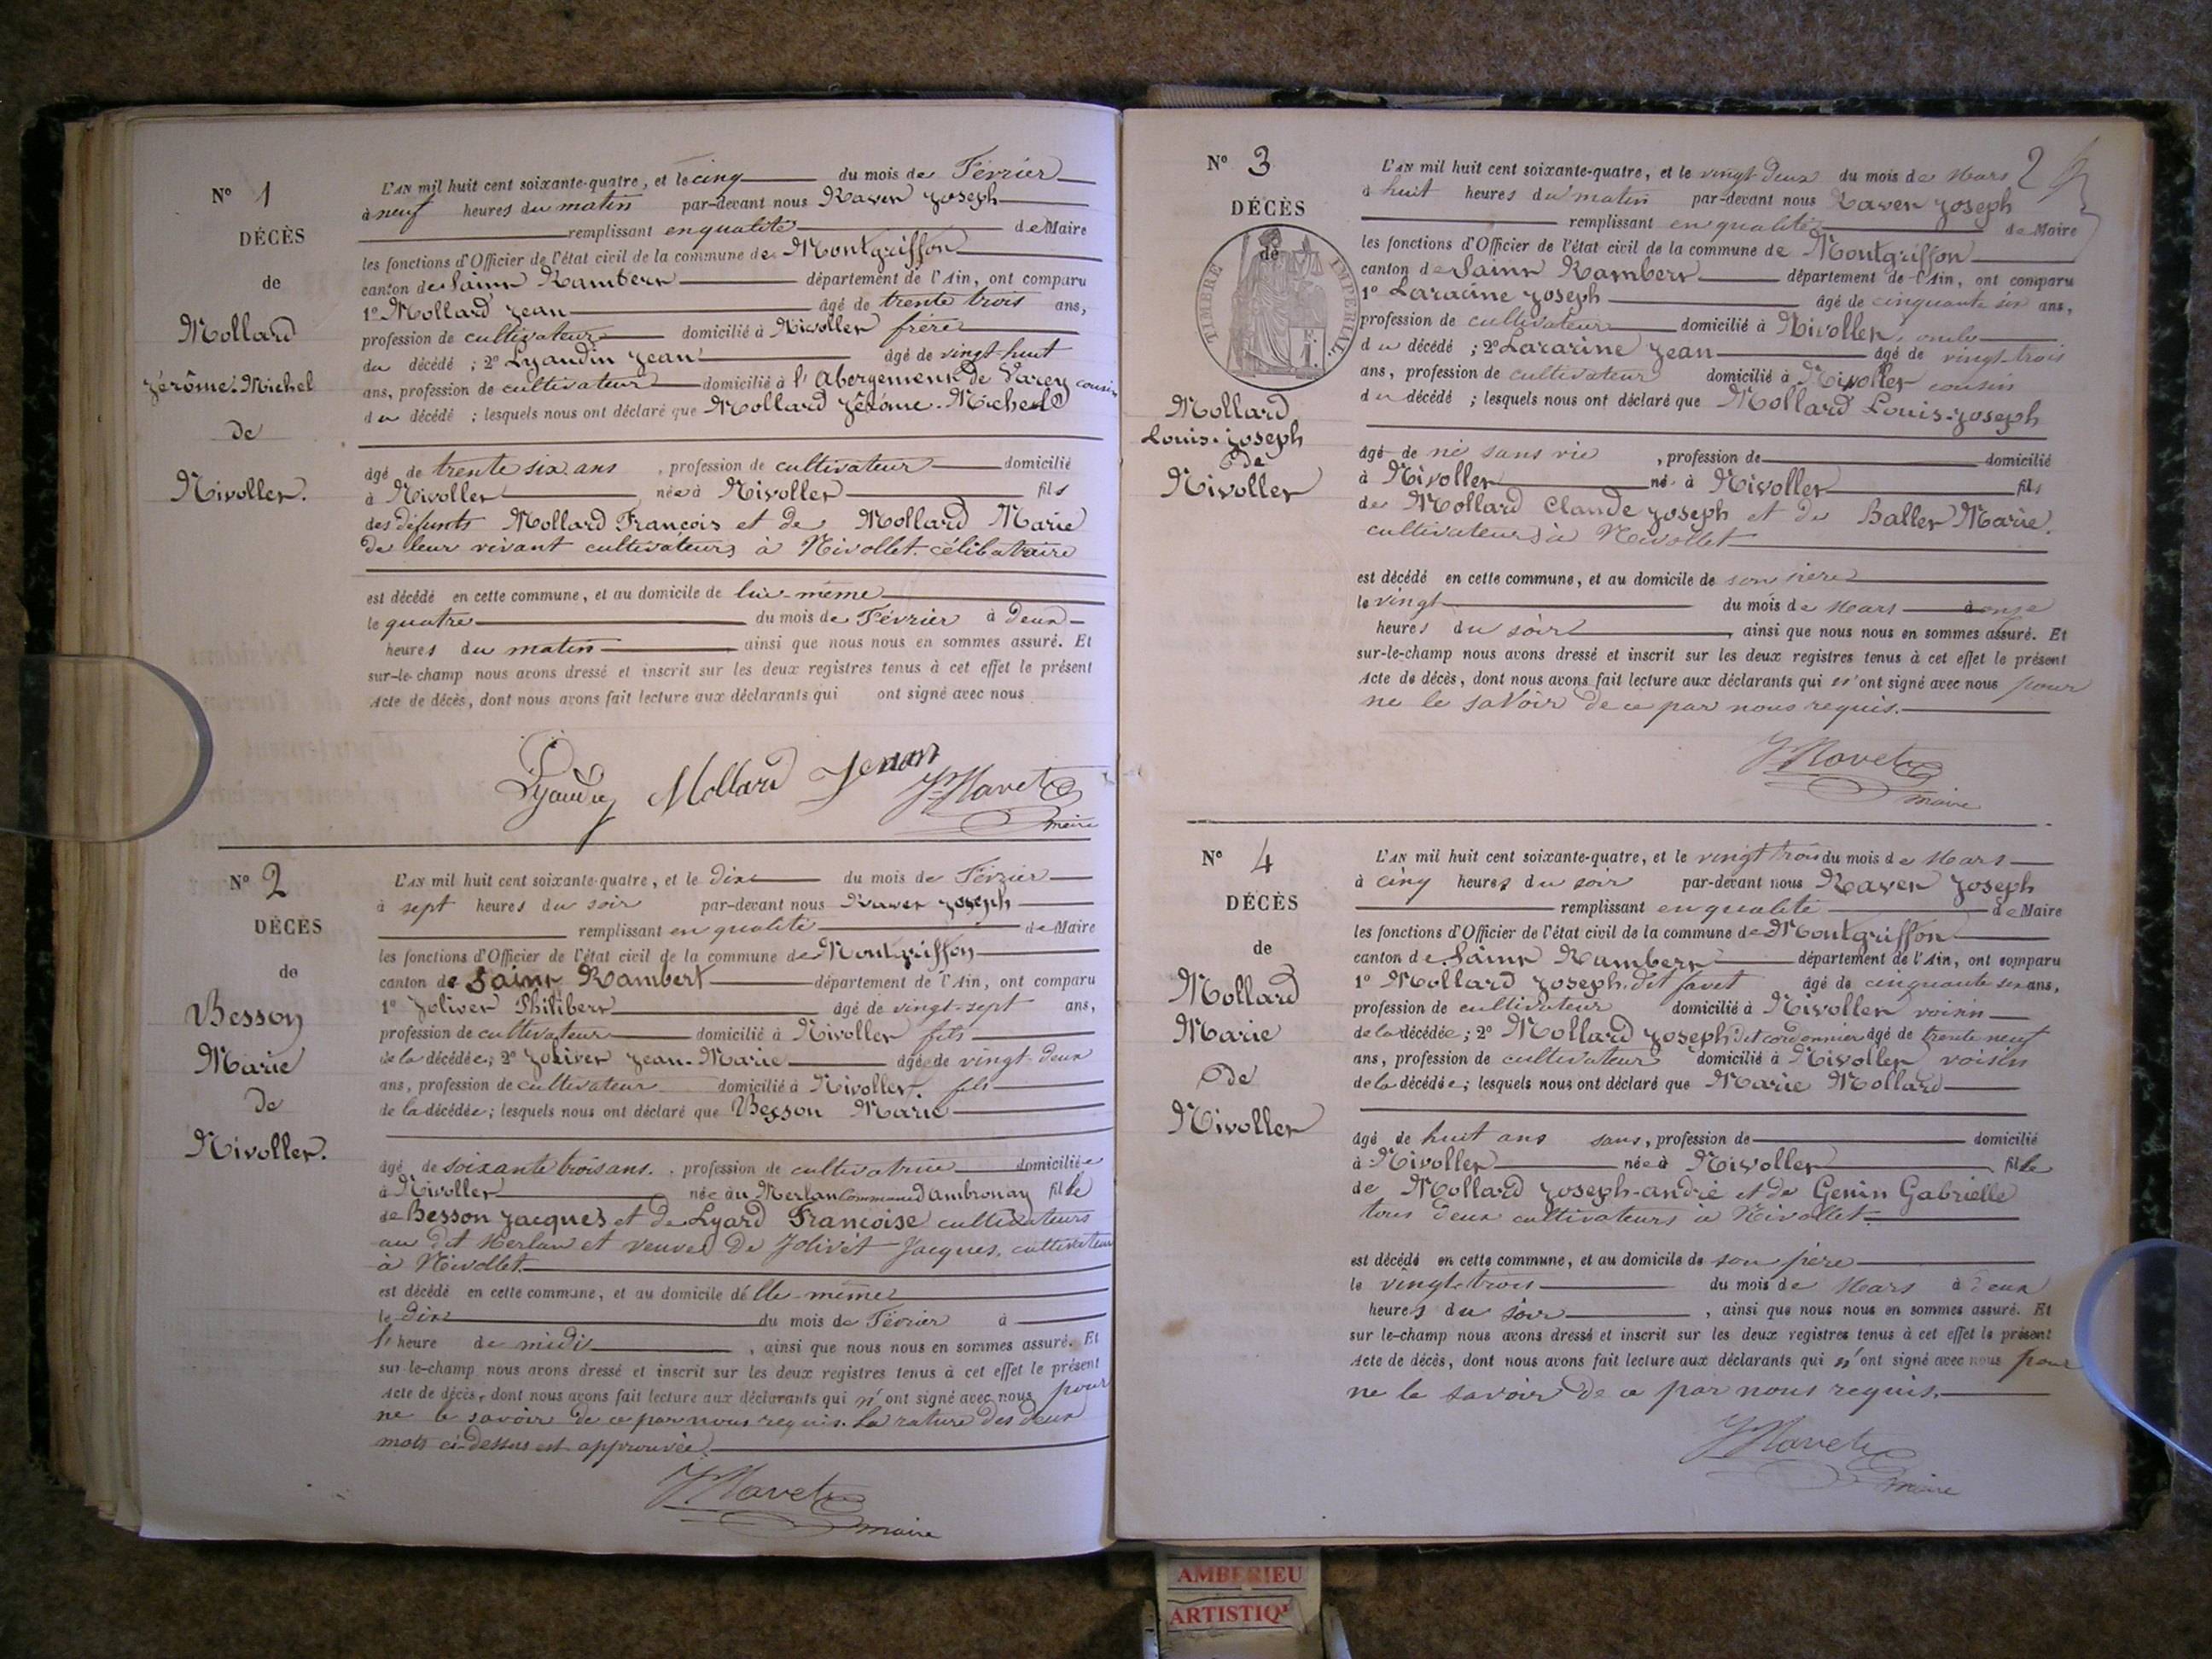 N° 1
DÉCÈS
de
Mollard
Jérôme-Michel
de
Nivollet.
L'AN mil huit cent soixante-quatre, et le cinq du mois de Février
à neuf heures du matin par-devant nous Ravet Joseph
remplissant en qualité de Maire
les fonctions d'Officier de l'état civil de la commune de Montgriffon
canton de Saint Rambert département de l'Ain, ont comparu
1° Mollard Jean âgé de trente trois ans,
profession de cultivateur domicilié à Nivollet frère
du décédé ; 2° Lyaudin Jean âgé de vingt-huit
ans, profession de cultivateur domicilié à l'Abergement de Varey cousin
du décédé ; lesquels nous ont déclaré que Mollard Jérôme-Michel
âgé de trente six ans , profession de cultivateur domicilié
à Nivollet née à Nivollet fils
des défunts Mollard François et de Mollard Marie
de leur vivant cultivateurs à Nivollet célibataire
est décédé en cette commune, et au domicile de lui-même
le quatre du mois de Février à deux
heures du matin ainsi que nous nous en sommes assuré. Et
sur-le-champ nous avons dressé et inscrit sur les deux registres tenus à cet effet le présent
Acte de décès, dont nous avons fait lecture aux déclarants qui ont signé avec nous
Mollard Jean J Ravet
maire
N° 2
DÉCÈS
de
Besson
Marie
de
Nivollet.
L'AN mil huit cent soixante-quatre, et le dix du mois de Février
à sept heures du soir par-devant nous Ravet Joseph
remplissant en qualité de Maire
les fonctions d'Officier de l'état civil de la commune de Montgriffon
canton de Saint Rambert département de l'Ain, ont comparu
1° Jolivet Philibert âgé de vingt-sept ans,
profession de cultivateur domicilié à Nivollet fils
de la décédée ; 2° Jolivet Jean-Marie âgé de vingt deux
ans, profession de cultivateur domicilié à Nivollet. fils
de la décédée ; lesquels nous ont déclaré que Besson Marie
âgé de soixante trois ans. , profession de cultivatrice domiciliée
à Nivollet née au Merlan commune d'Ambronay fille
de Besson Jacques et de Lyard Françoise cultivateurs
au dit Merlan et veuve de Jolivet Jacques, cultivateur
à Nivollet.
est décédé en cette commune, et au domicile d'elle-même
le dix du mois de Février à
l'heure de midi , ainsi que nous nous en sommes assuré. Et
sur-le-champ nous avons dressé et inscrit sur les deux registres tenus à cet effet le présent
Acte de décès, dont nous avons fait lecture aux déclarants qui n'ont signé avec nous pour
ne le savoir de ce par nous requis. La rature des deux
mots ci-dessus est approuvée.
J Ravet
maire
2
N° 3
DÉCÈS
de
TIMBRE IMPÉRIAL.
Mollard
Louis-Joseph
de
Nivollet
L'AN mil huit cent soixante-quatre, et le vingt-deux du mois de Mars
à huit heures du matin par-devant nous Ravet Joseph
remplissant en qualité de Maire
les fonctions d'Officier de l'état civil de la commune de Montgriffon
canton de Saint Rambert département de l'Ain, ont comparu
1° Laracine Joseph âgé de cinquante six ans,
profession de cultivateur domicilié à Nivollet, oncle
du décédé ; 2° Laracine Jean âgé de vingt-trois
ans, profession de cultivateur domicilié à Nivollet cousin
du décédé ; lesquels nous ont déclaré que Mollard Louis-Joseph
âgé de né sans vie , profession de domicilié
à Nivollet né à Nivollet fils
de Mollard Claude Joseph et de Ballet Marie.
cultivateurs à Nivollet
est décédé en cette commune, et au domicile de son père
le vingt du mois de Mars à onze
heures du soir , ainsi que nous nous en sommes assuré. Et
sur-le-champ nous avons dressé et inscrit sur les deux registres tenus à cet effet le présent
Acte de décès, dont nous avons fait lecture aux déclarants qui n'ont signé avec nous pour
ne le savoir de ce par nous requis.
J Ravet
maire
N° 4
DÉCÈS
de
Mollard
Marie
de
Nivollet
L'AN mil huit cent soixante-quatre, et le vingt trois du mois de Mars
à cinq heures du soir par-devant nous Ravet Joseph
remplissant en qualité de Maire
les fonctions d'Officier de l'état civil de la commune de Montgriffon
canton de Saint Rambert département de l'Ain, ont comparu
1° Mollard Joseph dit favet âgé de cinquante six ans,
profession de cultivateur domicilié à Nivollet voisin
de la décédée ; 2° Mollard Joseph dit cordonnier âgé de trente neuf
ans, profession de cultivateur domicilié à Nivollet voisin
de la décédée ; lesquels nous ont déclaré que Marie Mollard
âgé de huit ans sans, profession de domicilié
à Nivollet née à Nivollet fille
de Mollard Joseph-andré et de Genin Gabrielle
tous deux cultivateurs à Nivollet.
est décédé en cette commune, et au domicile de son père
le vingt-trois du mois de Mars à deux
heures du soir , ainsi que nous nous en sommes assuré. Et
sur le-champ nous avons dressé et inscrit sur les deux registres tenus à cet effet le présent
Acte de décès, dont nous avons fait lecture aux déclarants qui n'ont signé avec nous pour
ne le savoir de ce par nous requis.
J Ravet
maire
AMBERIEU
ARTISTIQ